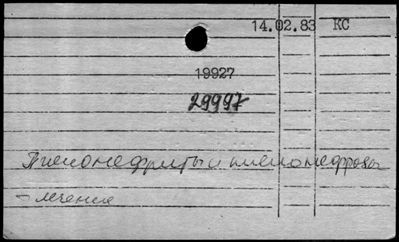 14.02.83 КС
19927
29997
Пиелонефриты и пиелонефрозы
- лечение